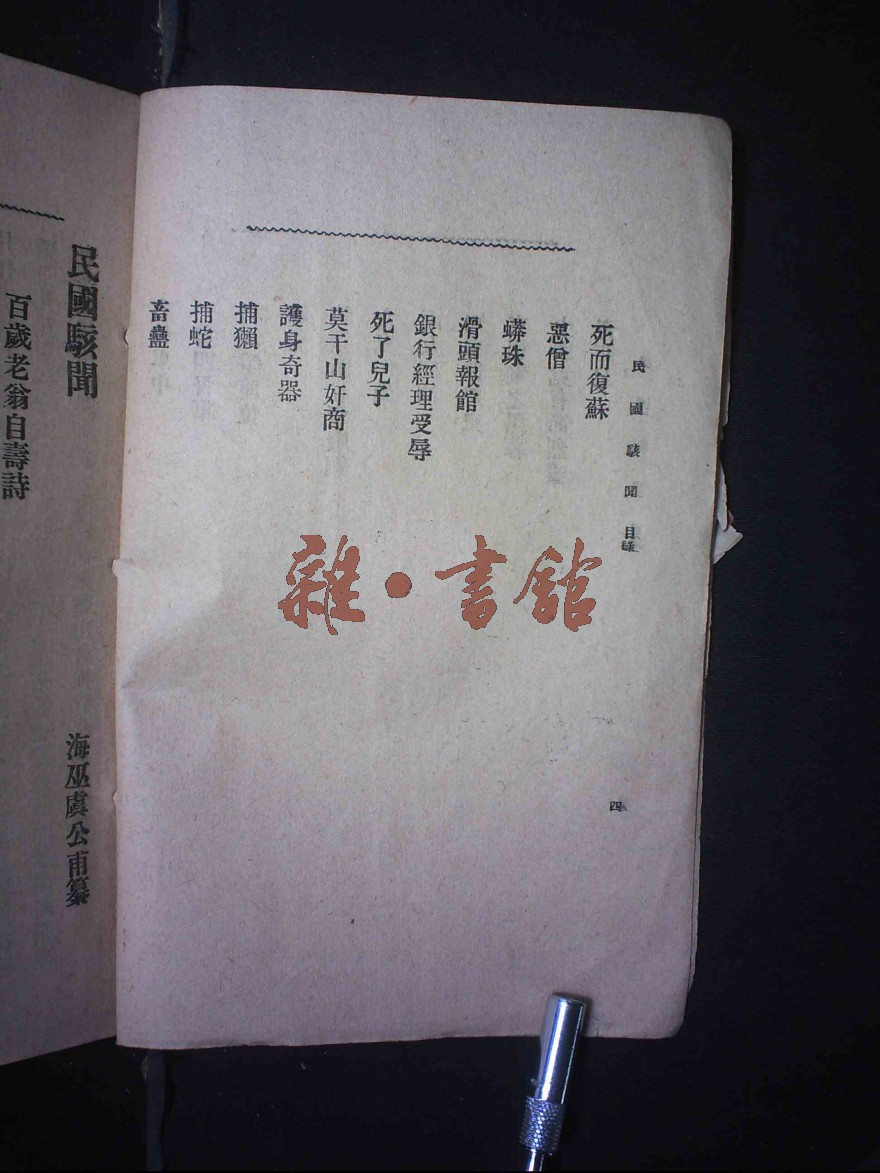 民國駭聞目錄
四
死而復蘇
惡僧
蟒珠
滑頭報館
銀行經理受辱
死了兒子
莫干山奸商
護身奇器
捕獺
捕蛇
畜蠱
民國駭聞
海巫虞公甫纂
百歲老翁自壽詩
雜·書館